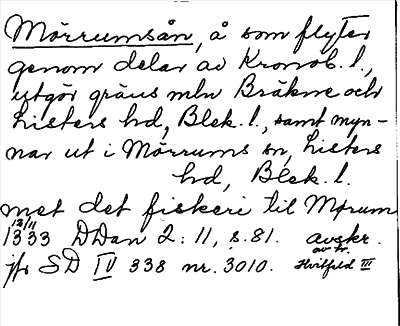 Mörrumsån, å som flyter
genom delar av Kronob. l.,
utgör gräns mln Bräkne och
Listers hd, Blek. l., samt myn-
nar ut i Mörrums sn, Listers
hd, Blek. l.
met det fiskeri til Mørum
12/11
1333 DDan 2: 11, s. 81. avskr.
av tr.
jfr SD IV 338 nr. 3010. Hvitfeld III